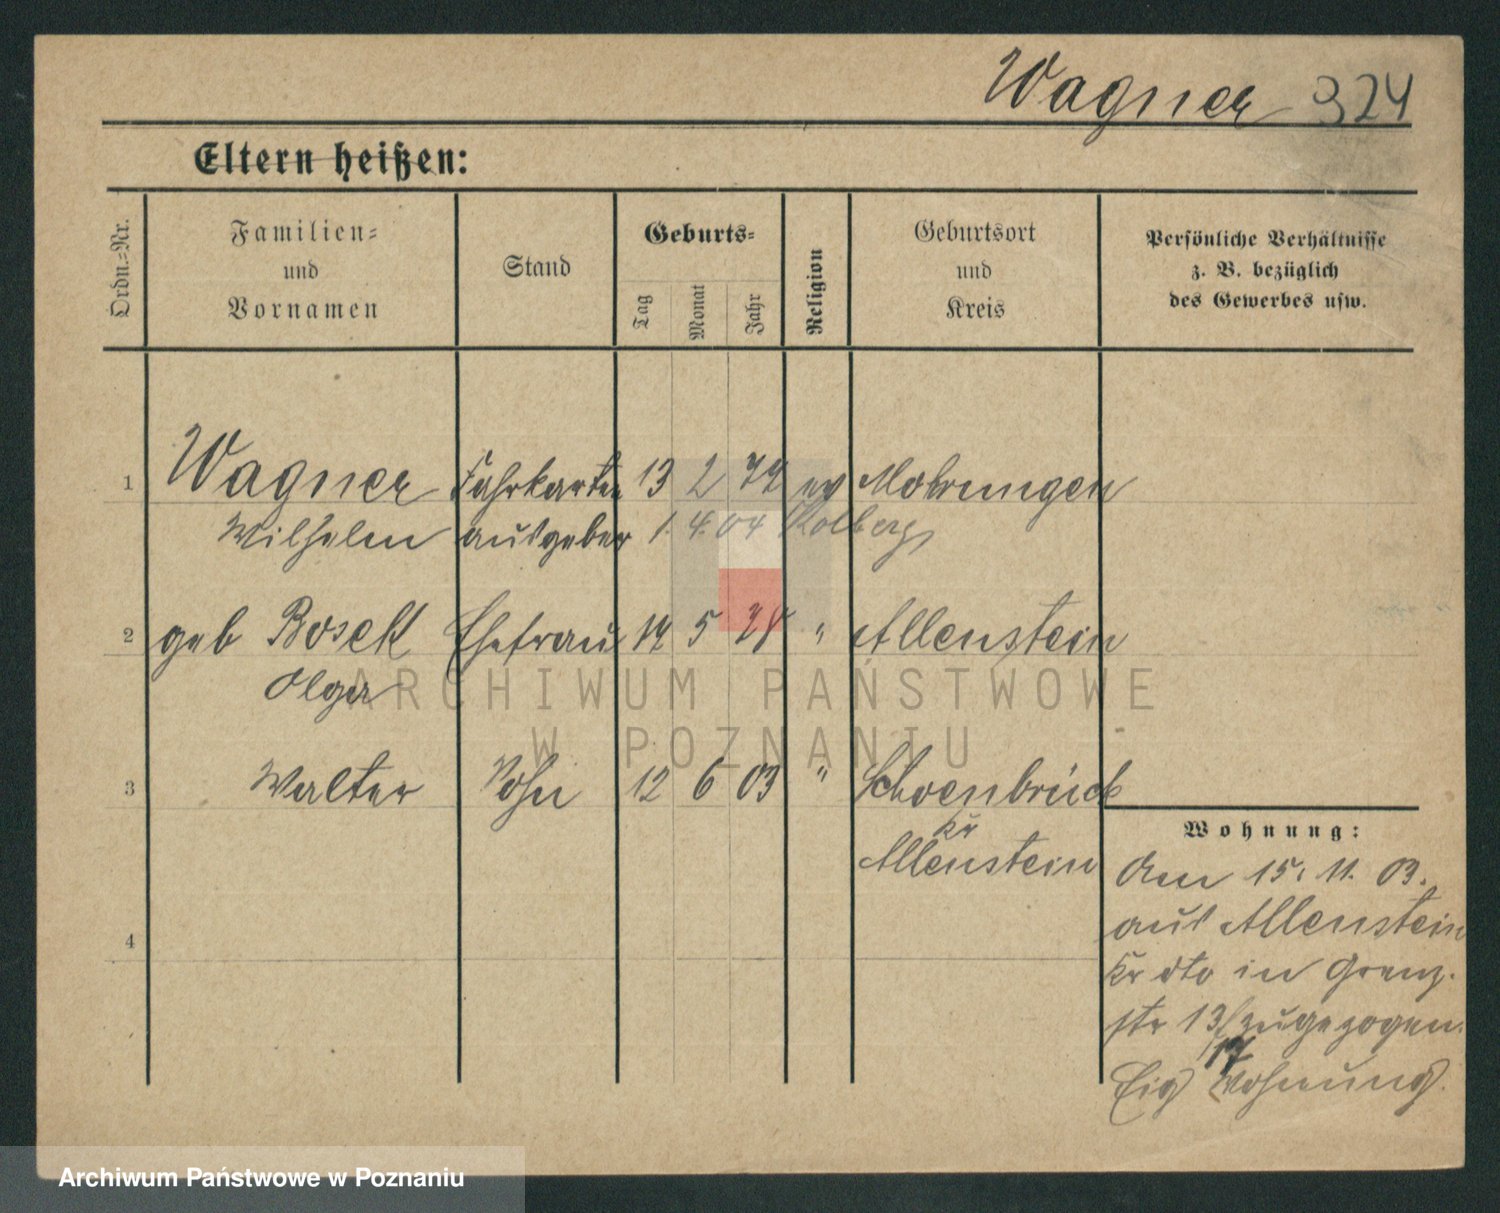 Wagner 324
Eltern heißen:
Ordn.-Nr.
Familien-
und
Vornamen
Stand
Geburts-
Tag
Monat
Jahr
Religion
Geburtsort
und
Kreis
Persönliche Verhältnisse
z. B. bezüglich
des Gewerbes usw.
1 Wagner Fahrkarten 13 2 77 ev Mohrungen
Wilhelm ausgeber 1. 4. 04 Kolberg
2 geb Bosek Ehefrau 14 5 78 " Allenstein
Olga
3 Walter Sohn 12 6 03 " Schoenbrück
Kr
Allenstein
4
Wohnung:
Am 15. 11. 03.
aus Allenstein
Kr dto in Grenz-
str 13/zugezogen.
17
Eig Wohnung.
ARCHIWUM PAŃSTWOWE
W POZNANIU
Archiwum Państwowe w Poznaniu